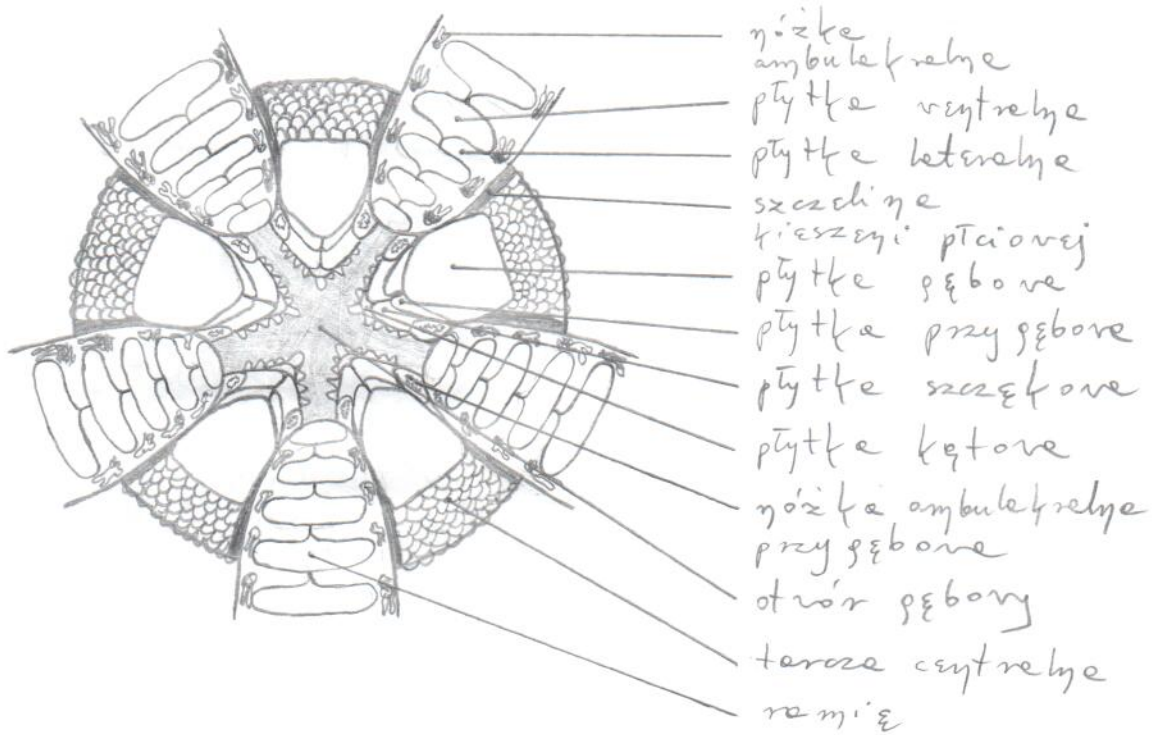 nóżka
ambulakralna
płytka wentralna
płytka lateralna
szczelina
kieszeni płciowej
płytka gębowa
płytka przygębowa
płytka szczękowa
płytka kątowa
nóżka ambulakralna
przygębowa
otwór gębowy
tarcza centralna
ramię